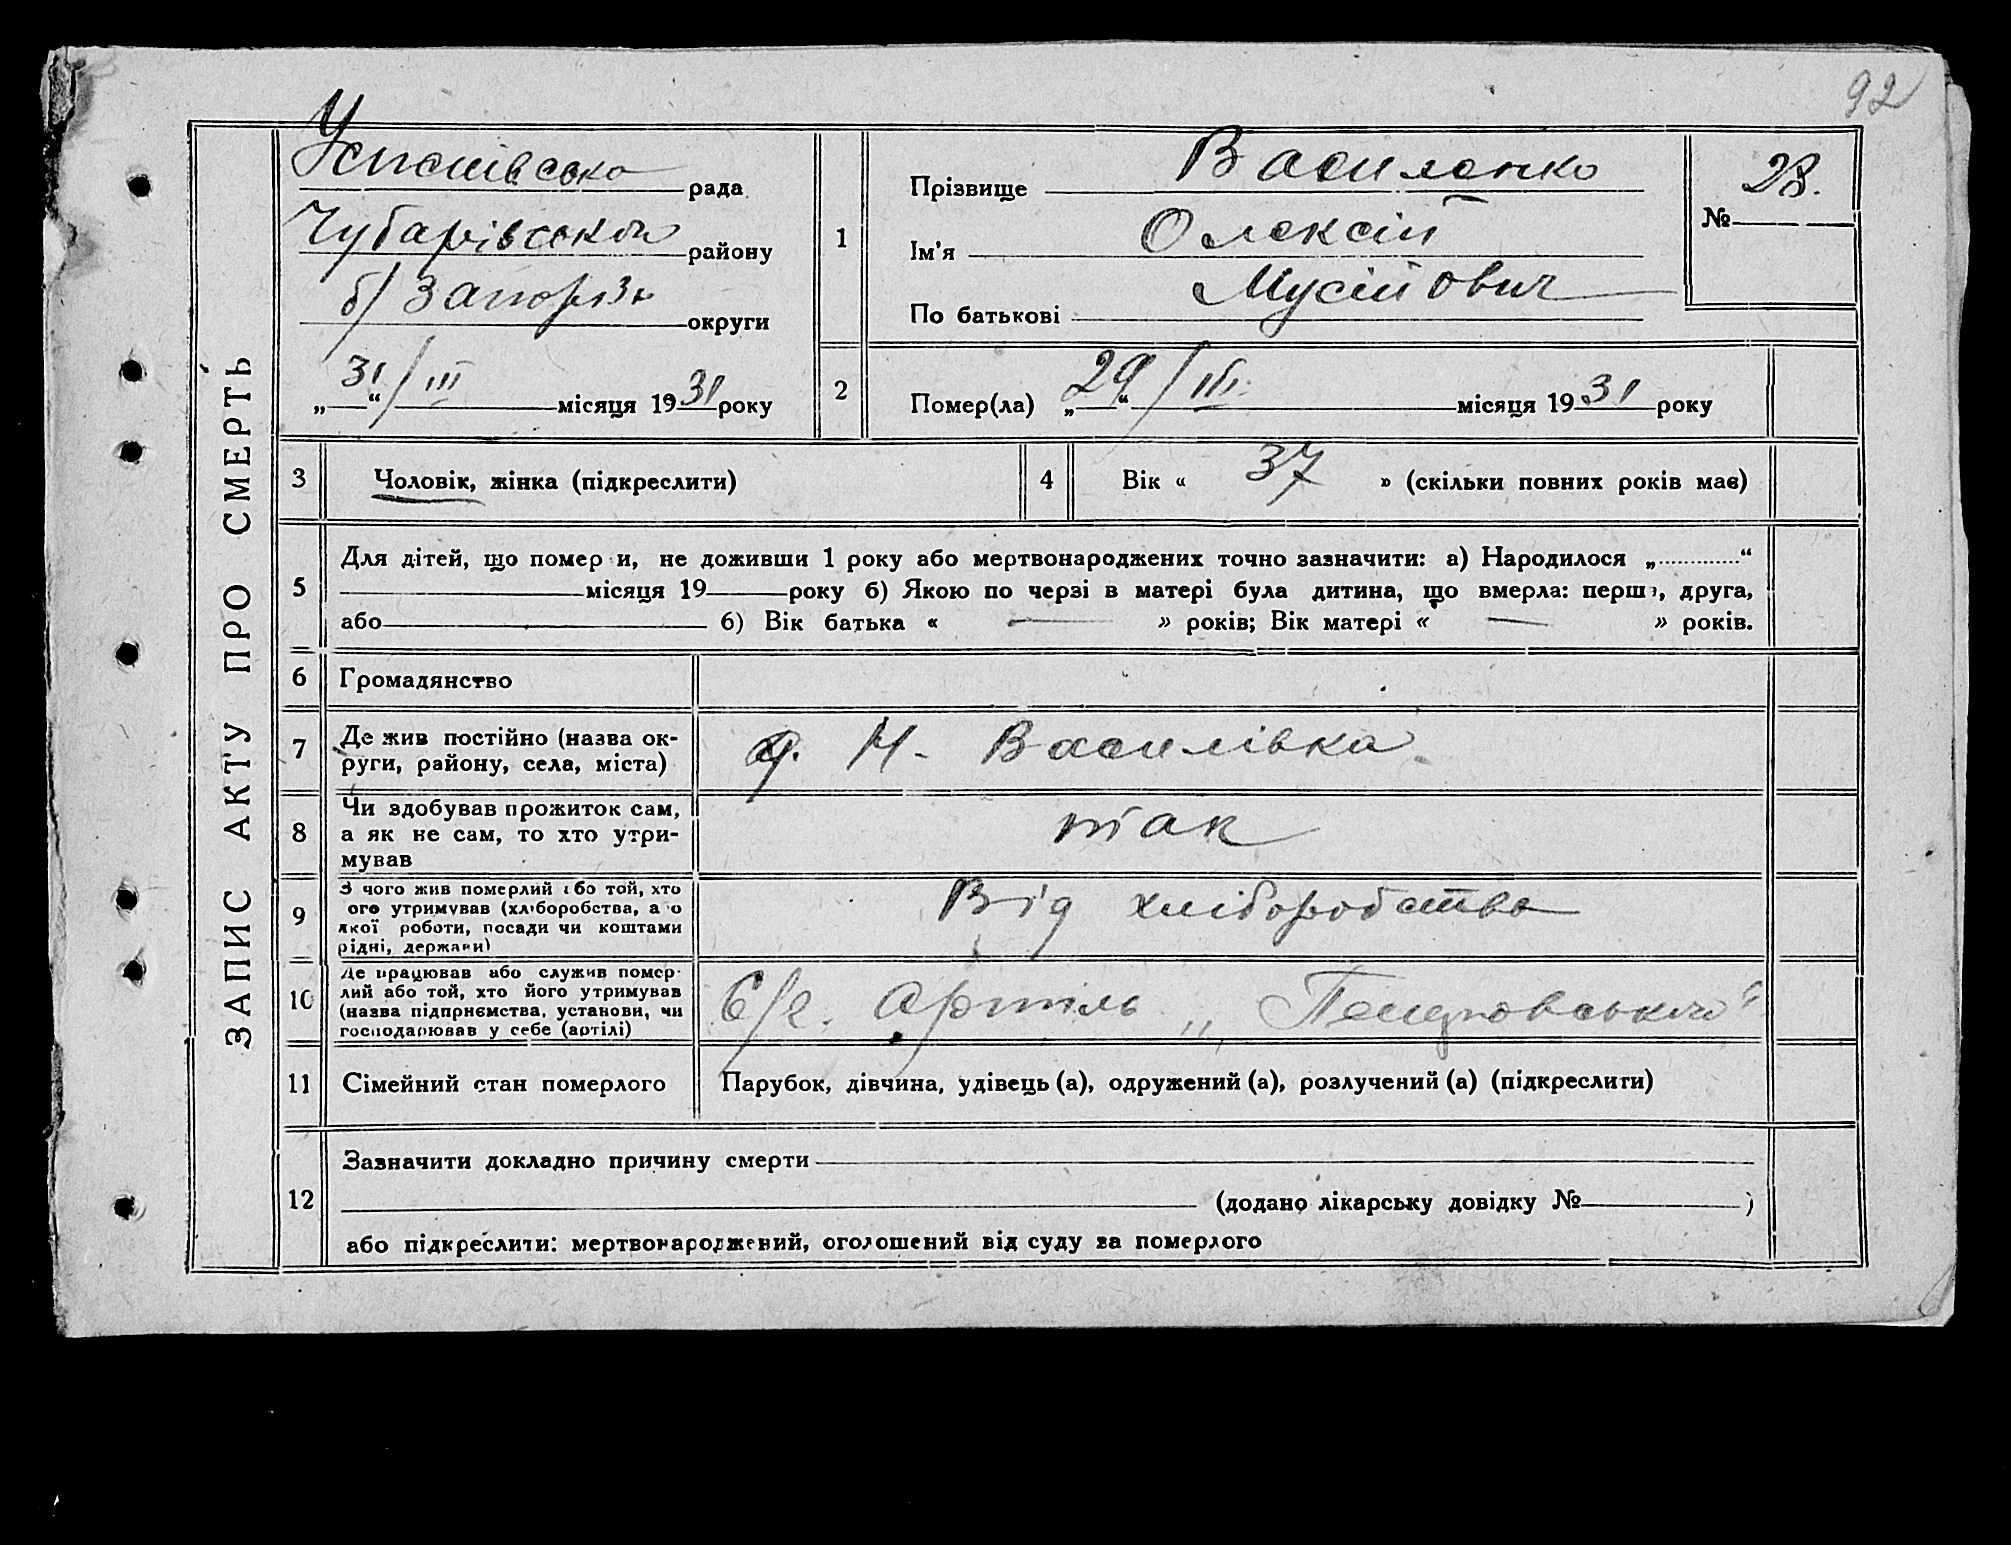 92
ЗАПИС АКТУ ПРО СМЕРТЬ
Успенівська рада
Чубарівськог району
б/ Запоріз округи
„31“ / III місяця 1931 року
1
Прізвище Василенко
Ім'я Олексій
По батькові Мусійович
№ 28.
2
Помер(ла) „29“ / III місяця 1931 року
3 Чоловік, жінка (підкреслити)
4 Вік « 37 » (скільки повних років має)
5
Для дітей, що помер и, не доживши 1 року або мертвонароджених точно зазначити: а) Народилося „............“
місяця 19 року б) Якою по черзі в матері була дитина, що вмерла: перша, друга,
або б) Вік батька « — » років; Вік матері « — » років.
6 Громадянство
7 Де жив постійно (назва ок-
руги, району, села, міста)
Н. Василівка
8 Чи здобував прожиток сам,
а як не сам, то хто утри-
мував
так
9 З чого жив померлий або той, хто
ого утримував (хліборобства, а о
якої роботи, посади чи коштами
рідні, держави)
Від хліборобства
10 Де працював або служив помер-
лий або той, хто його утримував
(назва підприємства, установи, чи
господарював у себе (артілі)
С/г. Артіль
11 Сімейний стан померлого
Парубок, дівчина, удівець (а), одружений (а), розлучений (а) (підкреслити)
12
Зазначити докладно причину смерти
(додано лікарську довідку № )
або підкреслити: мертвонароджений, оголошений від суду за померлого